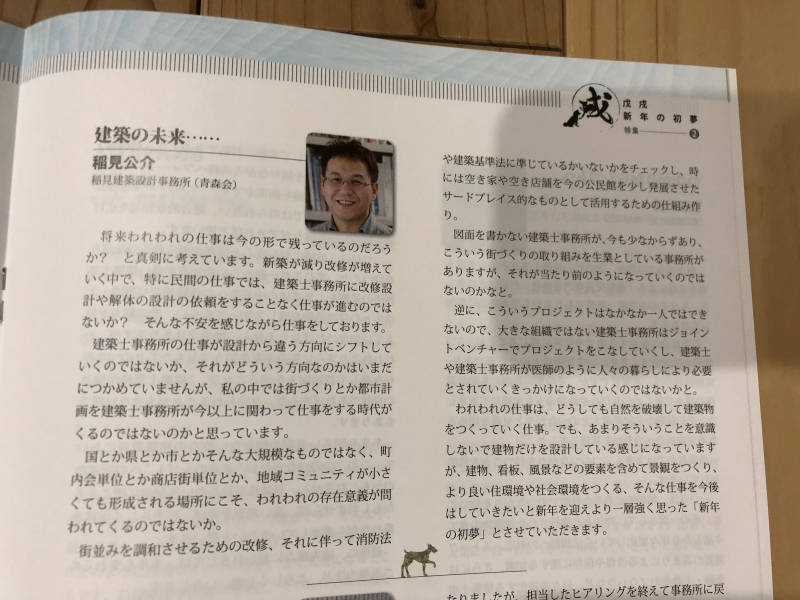 戌
戊戌
新年の初夢
特集 2
建築の未来……
稲見公介
稲見建築設計事務所(青森会)
将来われわれの仕事は今の形で残っているのだろう
か? と真剣に考えています。新築が減り改修が増えて
いく中で、特に民間の仕事では、建築士事務所に改修設
計や解体の設計の依頼をすることなく仕事が進むのでは
ないか? そんな不安を感じながら仕事をしております。
建築士事務所の仕事が設計から違う方向にシフトして
いくのではないか、それがどういう方向なのかはいまだ
につかめていませんが、私の中では街づくりとか都市計
画を建築士事務所が今以上に関わって仕事をする時代が
くるのではないのかと思っています。
国とか県とか市とかそんな大規模なものではなく、町
内会単位とか商店街単位とか、地域コミュニティが小さ
くても形成される場所にこそ、われわれの存在意義が問
われてくるのではないか。
街並みを調和させるための改修、それに伴って消防法
や建築基準法に準じているかいないかをチェックし、時
には空き家や空き店舗を今の公民館を少し発展させた
サードプレイス的なものとして活用するための仕組み作
り。
図面を書かない建築士事務所が、今も少なからずあり、
こういう街づくりの取り組みを生業としている事務所が
ありますが、それが当たり前のようになっていくのでは
ないのかなと。
逆に、こういうプロジェクトはなかなか一人ではでき
ないので、大きな組織ではない建築士事務所はジョイン
トベンチャーでプロジェクトをこなしていくし、建築士
や建築士事務所が医師のように人々の暮らしにより必要
とされていくきっかけになっていくのではないかと。
われわれの仕事は、どうしても自然を破壊して建築物
をつくっていく仕事。でも、あまりそういうことを意識
しないで建物だけを設計している感じになっています
が、建物、看板、風景などの要素を含めて景観をつくり、
より良い住環境や社会環境をつくる、そんな仕事を今後
はしていきたいと新年を迎えより一層強く思った「新年
の初夢」とさせていただきます。
たりましたが、担当したヒアリングを終えて事務所に戻